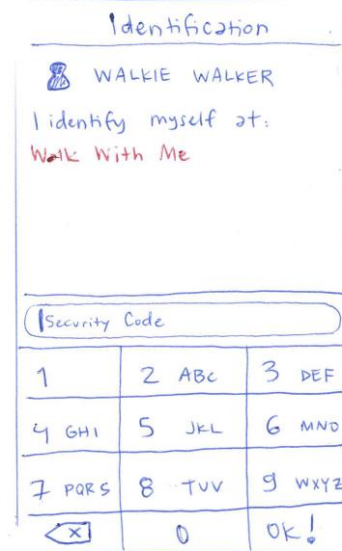 Identification
WALKIE WALKER
I identify myself at:
Walk With Me
Security Code
1 2 ABC 3 DEF
4 GHI 5 JKL 6 MNO
7 PQRS 8 TUV 9 WXYZ
X 0 OK!